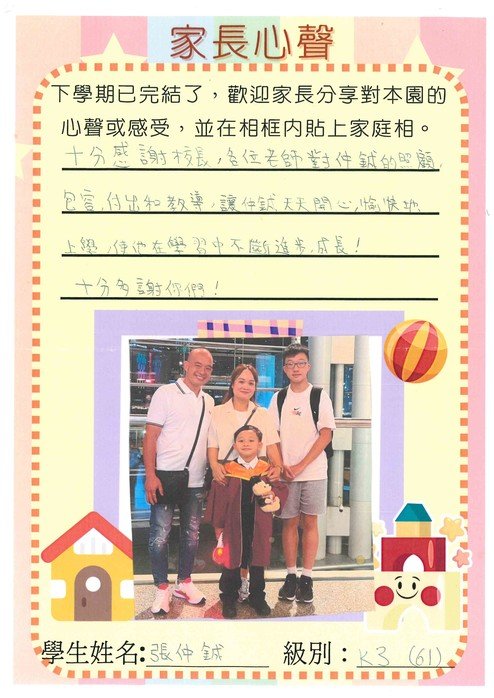 家長心聲
下學期已完結了，歡迎家長分享對本園的
心聲或感受，並在相框內貼上家庭相。
十分感謝校長，各位老師對仲鋮的照顧，
包容，付出和教導，讓仲鋮天天開心，愉快地
上學，使他在學習中不斷進步，成長！
十分多謝你們！
學生姓名:張仲鋮 級別：K3 (61)